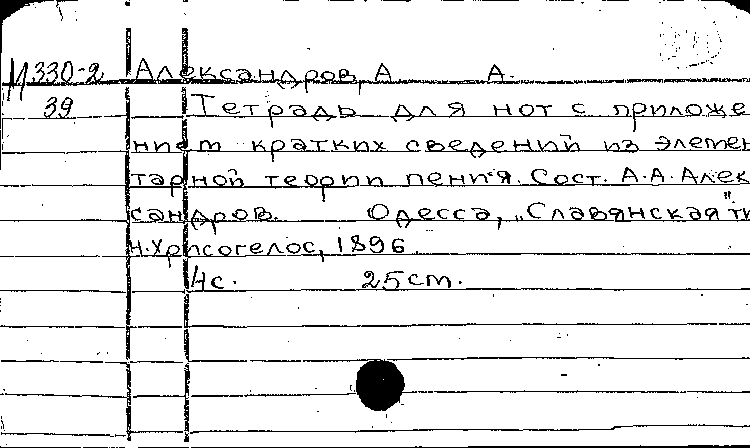 М 330-2 Александров, А. А.
39 Тетрадь для нот с приложе
нием кратких сведений из элемен
тарной теории пения. Сост. А.А. Алек
сандров. Одесса, „Славянская" ти
Н. Хрисогелос, 1896.
4с. 25 cm.